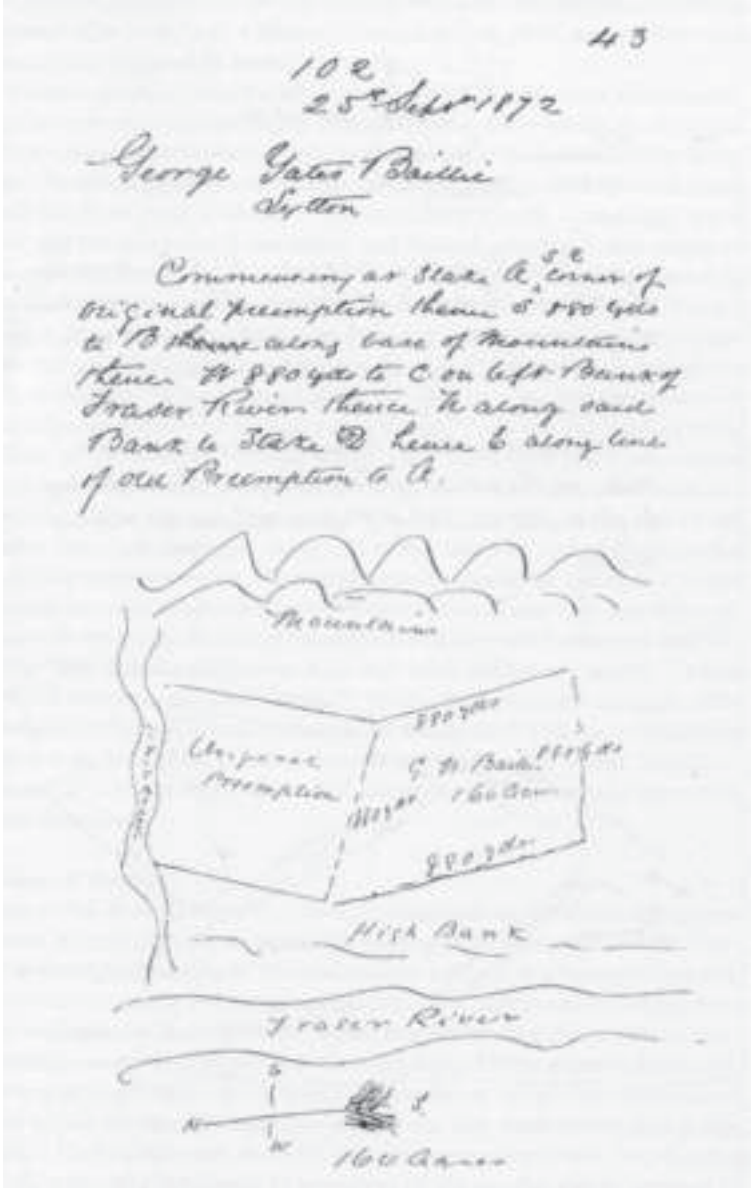 43
102
25th Septr 1872
George Yates Baillie
Lytton
Commencing at Stake A, SE corner of
original preemption thence S 880 yds
to B thence along base of Mountains
thence W 880 yds to C on left Bank of
Fraser River thence N along said
Bank to Stake D hence E along line
of old Preemption to A.
Mountains
880 yds
Original
Preemption
G. Y. Baillie
160 Acres
880 yds
880 yds
High Bank
Fraser River
N
W
S
160 Acres